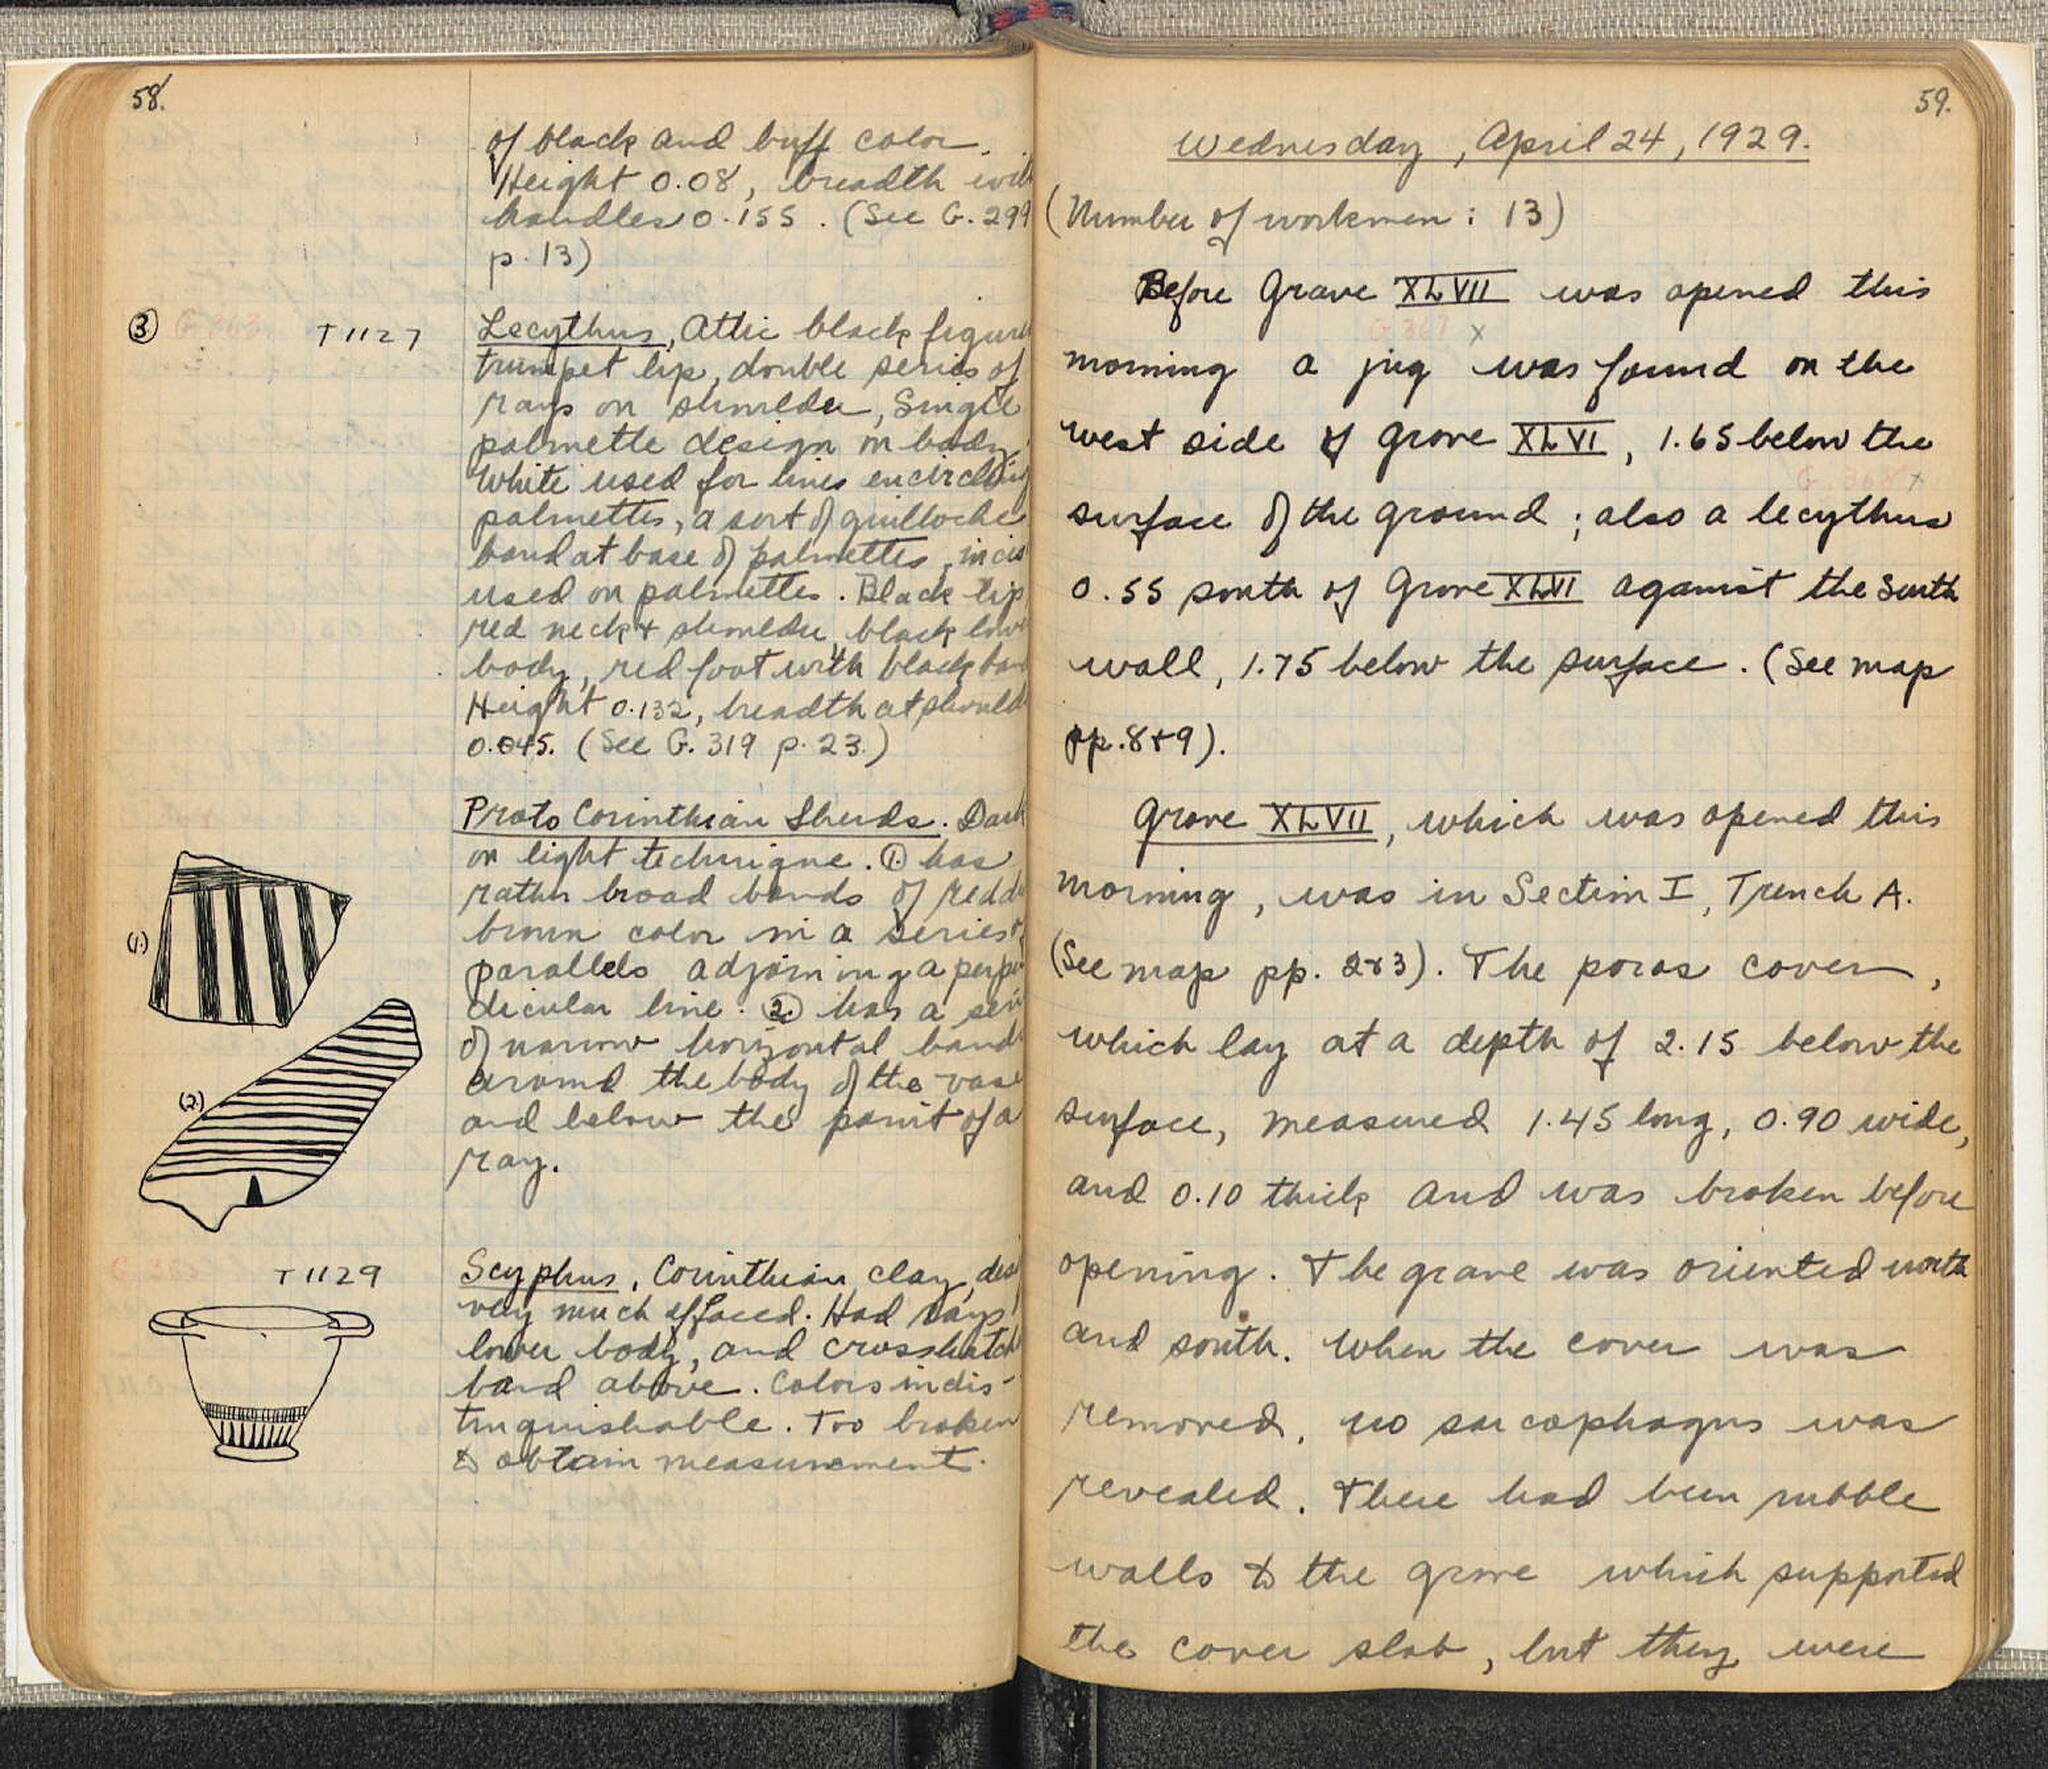 58.
of black and buff color.
Height 0.08, breadth with
handles 0.155. (See G. 299
p. 13)
③ G 363 T 1127
Lecythus, Attic black figure
trumpet lip, double series of
rays on shoulder, single
palmette design on body.
White used for lines encircling
palmettes, a sort of guilloche
band at base of palmettes, incis
used on palmettes. Black lip,
red neck + shoulder, black lower
body, red foot with black band
Height 0.132, breadth at should
0.045. (See G. 319 p. 23.)
Proto Corinthian Sherds. Dark
on light technique. ① has
rather broad bands of reddi
brown color in a series of
parallels adjoining a perpen
dicular line. ② has a seri
of narrow horizontal bands
around the body of the vase
and below the point of a
ray.
(1.)
(2.)
T 1129
Scyphus, Corinthian clay, desi
very much effaced. Had rays
lower body, and crosshatch
band above. Colors indis-
tinguishable. Too broken
to obtain measurement.
59.
Wednesday, April 24, 1929.
(Number of workmen : 13)
Before Grave XLVII was opened this
G 367 x
morning a jug was found on the
west side of grave XLVI, 1.65 below the
G. 368 x
surface of the ground ; also a lecythus
0.55 south of Grave XLVI against the south
wall, 1.75 below the surface. (See map
pp. 8+9).
Grave XLVII, which was opened this
morning, was in Section I, Trench A.
(See map pp. 2+3). The poros cover,
which lay at a depth of 2.15 below the
surface, measured 1.45 long, 0.90 wide,
and 0.10 thick and was broken before
opening. The grave was oriented north
and south. When the cover was
removed, no sarcophagus was
revealed. There had been rubble
walls to the grave which supported
the cover slab, but they were